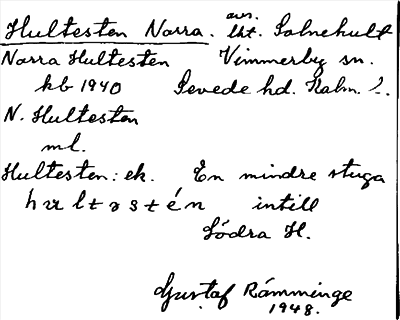 Hultesten Norra. avs. lht. Solnehult
Norra Hultesten Vimmerby sn.
kb 1940 Sevede hd. Kalm. l.
N. Hultesten
ml.
Hultesten: ek. En mindre stuga
hultəstén intill
Södra H.
Gustaf Rämminge
1948.